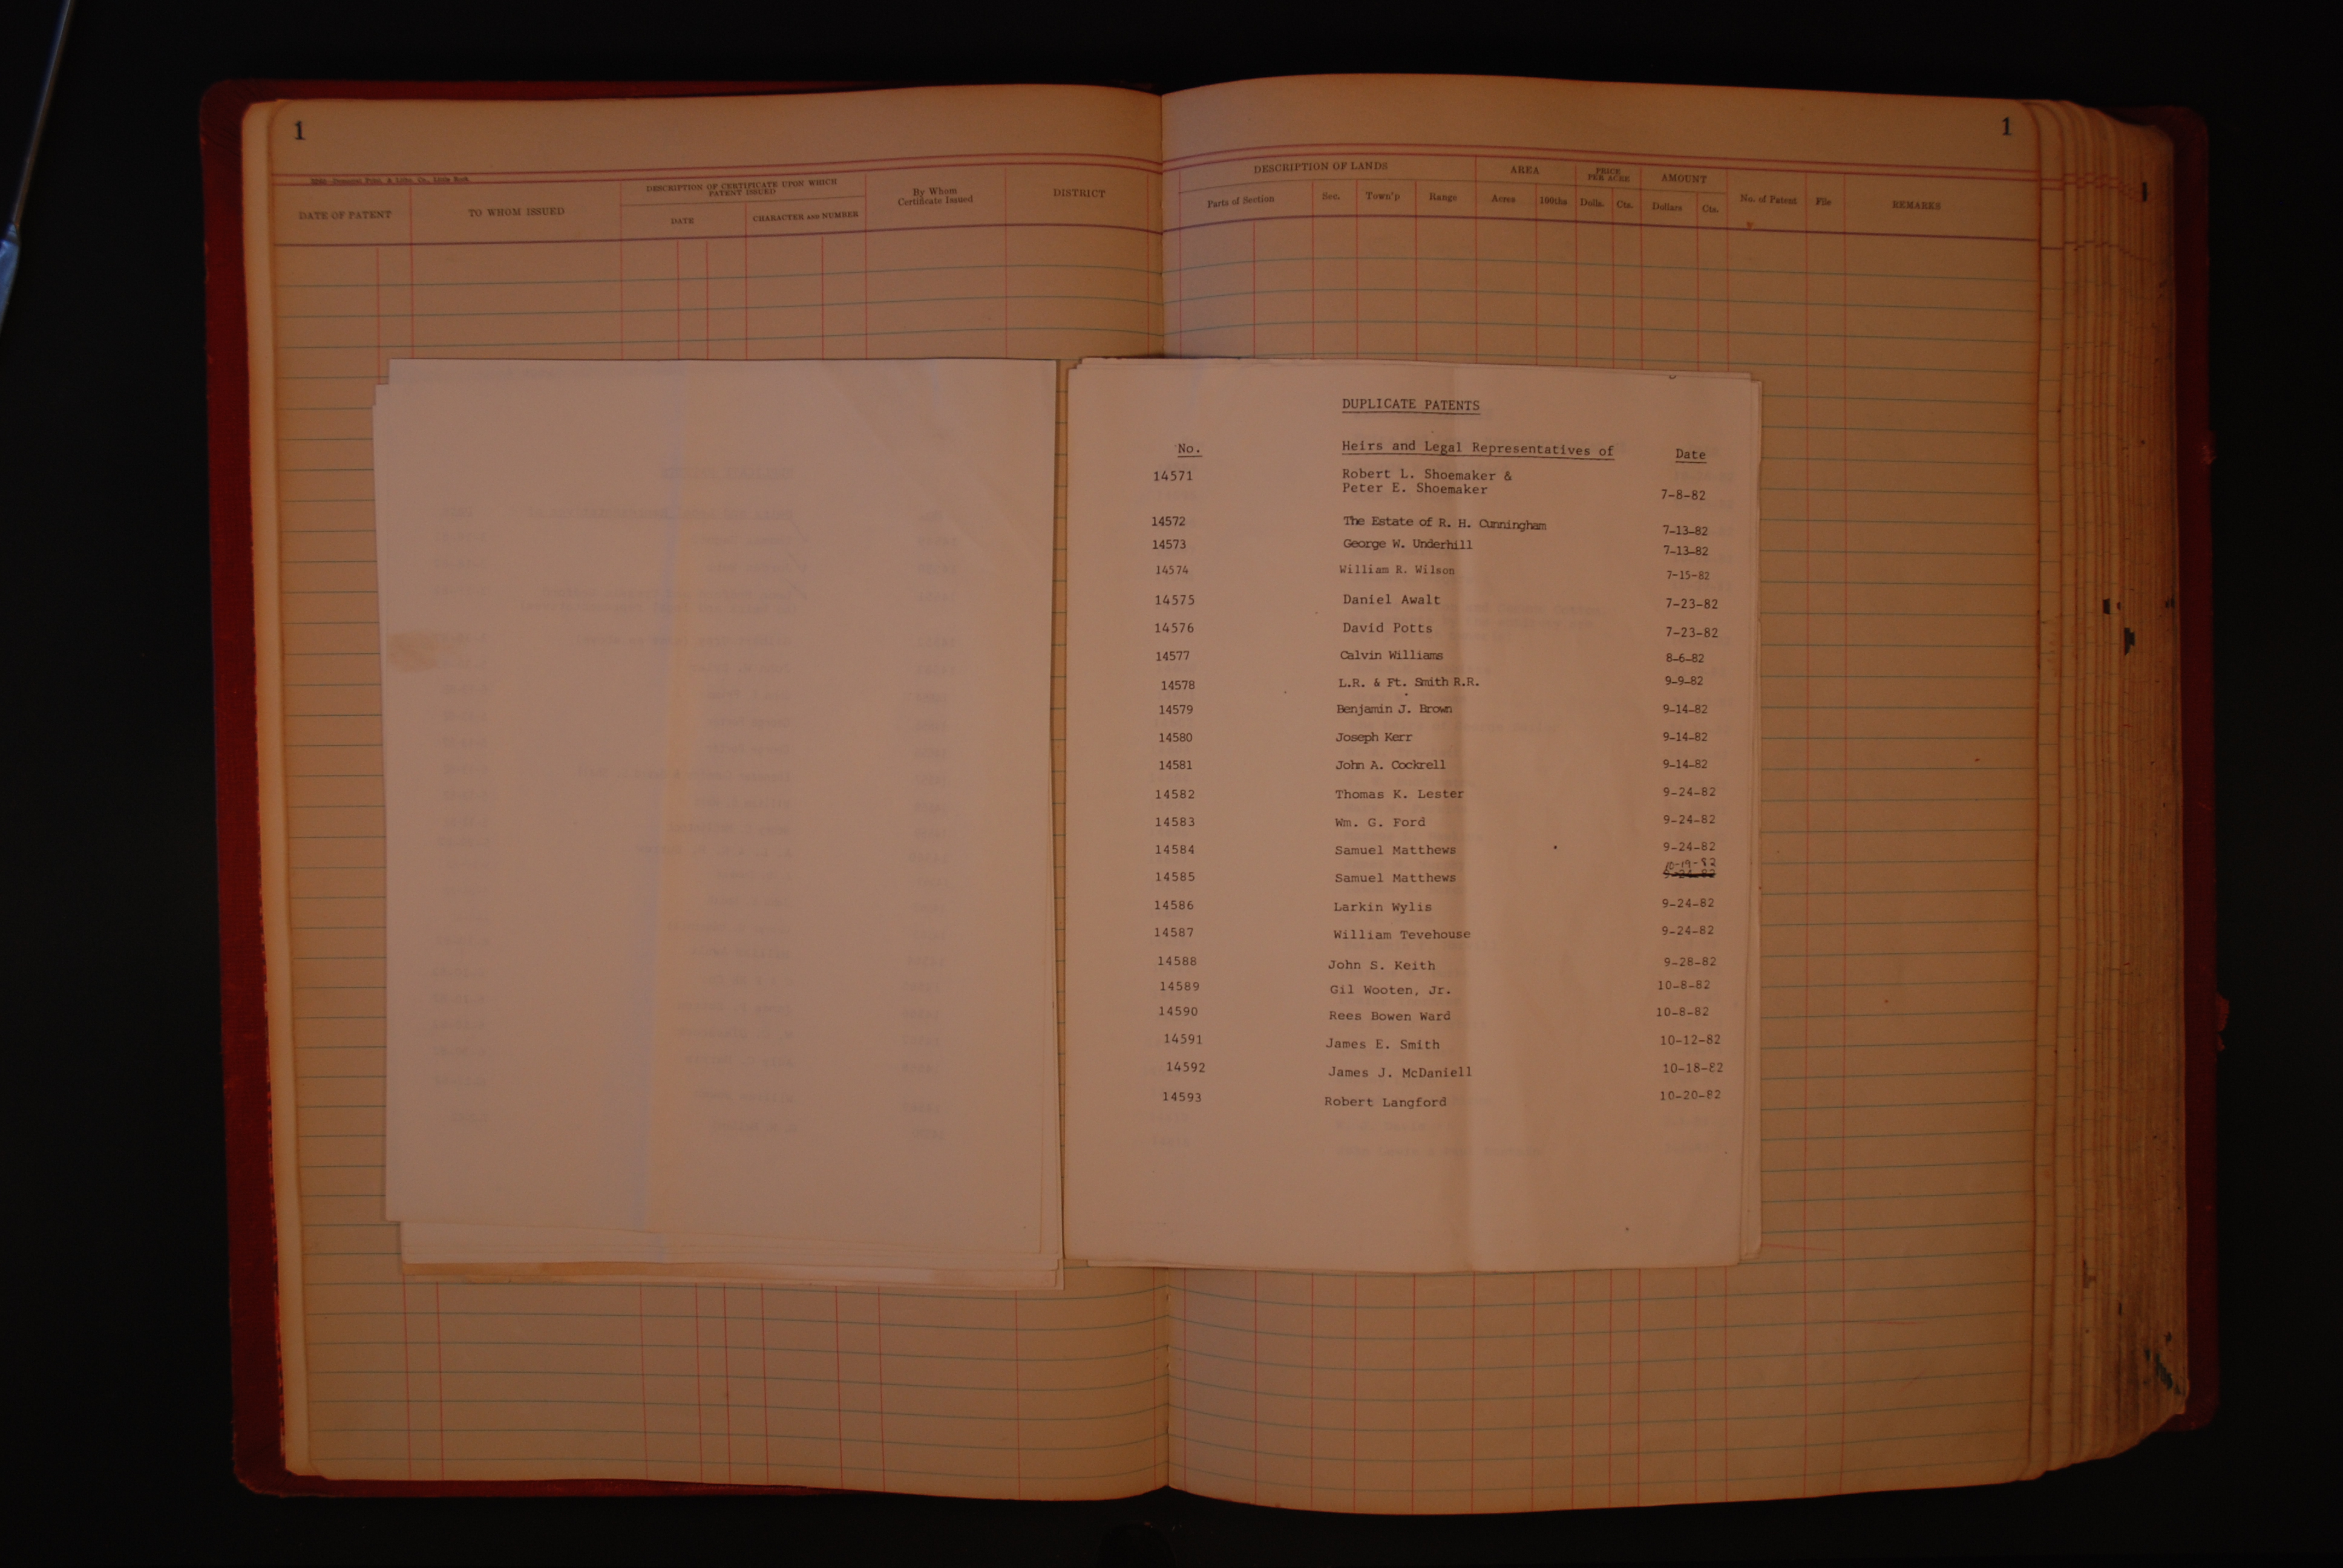 1
1
DESCRIPTION OF CERTIFICATE UPON WHICH PATENT ISSUED
DATE OF PATENT TO WHOM ISSUED DATE CHARACTER AND NUMBER By Whom Certificate Issued DISTRICT
DESCRIPTION OF LANDS AREA PRICE PER ACRE AMOUNT
Parts of Section Sec. Town'p Range Acres 100ths Dolls. Cts. Dollars Cts. No. of Patent File REMARKS
DUPLICATE PATENTS
No. Heirs and Legal Representatives of Date
14571 Robert L. Shoemaker &
Peter E. Shoemaker 7-8-82
14572 The Estate of R. H. Cunningham 7-13-82
14573 George W. Underhill 7-13-82
14574 William R. Wilson 7-15-82
14575 Daniel Awalt 7-23-82
14576 David Potts 7-23-82
14577 Calvin Williams 8-6-82
14578 L.R. & Ft. Smith R.R. 9-9-82
14579 Benjamin J. Brown 9-14-82
14580 Joseph Kerr 9-14-82
14581 John A. Cockrell 9-14-82
14582 Thomas K. Lester 9-24-82
14583 Wm. G. Ford 9-24-82
14584 Samuel Matthews 9-24-82
10-19-82
14585 Samuel Matthews 9-24-82
14586 Larkin Wylis 9-24-82
14587 William Tevehouse 9-24-82
14588 John S. Keith 9-28-82
14589 Gil Wooten, Jr. 10-8-82
14590 Rees Bowen Ward 10-8-82
14591 James E. Smith 10-12-82
14592 James J. McDaniell 10-18-82
14593 Robert Langford 10-20-82